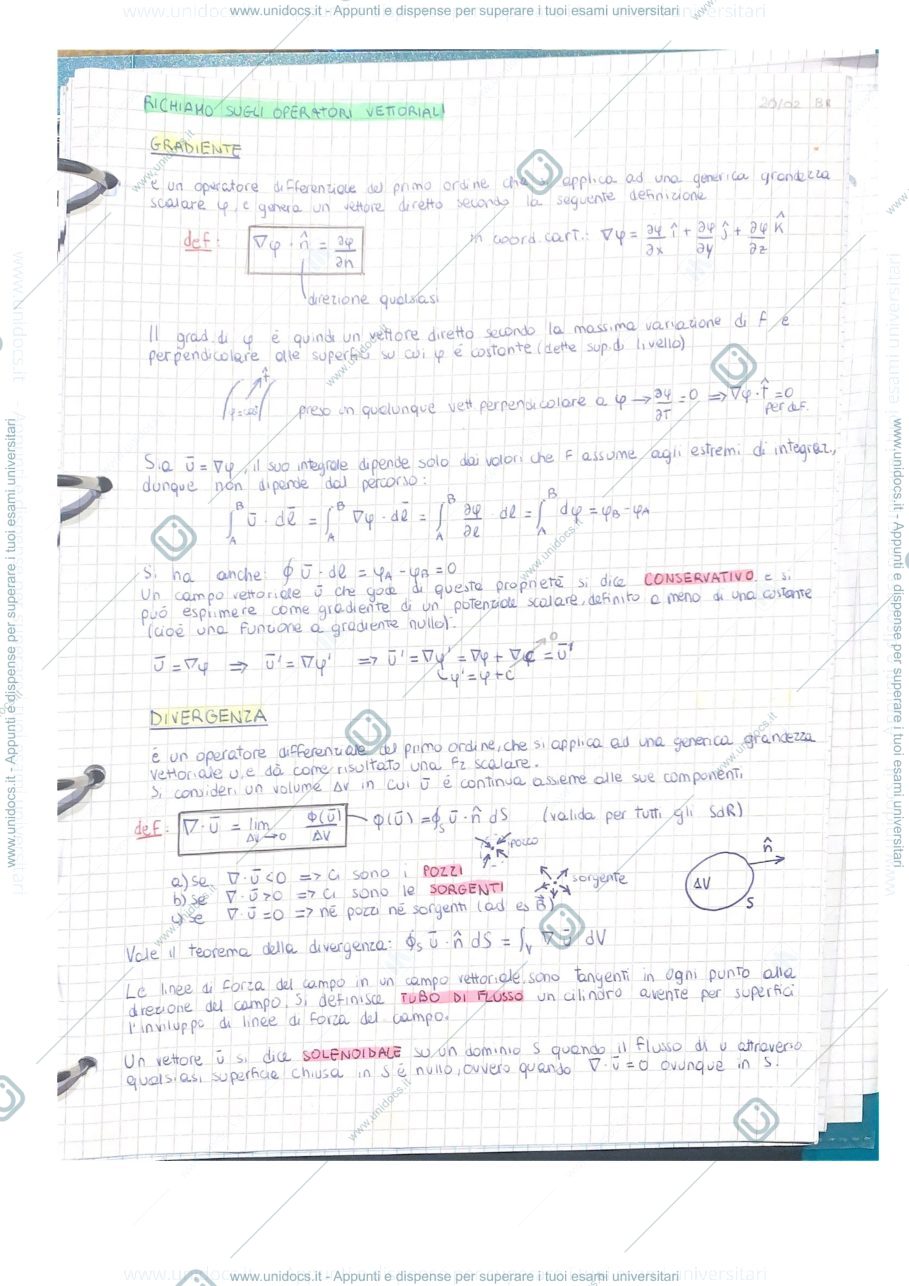 www.unidocs.it - Appunti e dispense per superare i tuoi esami universitari
RICHIAMO SUGLI OPERATORI VETTORIALI
20/02 BR
GRADIENTE
è un operatore differenziale del primo ordine che si applica ad una generica grandezza
scalare φ, e genera un vettore diretto secondo la seguente definizione
def: ∇φ · n̂ = ∂φ/∂n
in coord. cart.: ∇φ = ∂φ/∂x î + ∂φ/∂y ĵ + ∂φ/∂z k̂
direzione qualsiasi
Il grad. di φ è quindi un vettore diretto secondo la massima variazione di f e
perpendicolare alle superfici su cui φ è costante (dette sup. di livello)
t̂
φ=cost
preso in qualunque vett. perpendicolare a φ → ∂φ/∂τ = 0 => ∇φ · t̂ = 0
per def.
Sia ū = ∇φ, il suo integrale dipende solo dai valori che f assume agli estremi di integraz.,
dunque non dipende dal percorso:
∫_A^B ū · dl̄ = ∫_A^B ∇φ · dl̄ = ∫_A^B ∂φ/∂l · dl = ∫_A^B dφ = φB - φA
Si ha anche: ∮ ū · dl = φA - φB = 0
Un campo vettoriale ū che gode di questa proprietà si dice CONSERVATIVO e si
può esprimere come gradiente di un potenziale scalare, definito a meno di una costante
(cioè una funzione a gradiente nullo).
ū = ∇φ => ū' = ∇φ' => ū' = ∇φ' = ∇φ + ∇c = ū'
0
φ' = φ + c
DIVERGENZA
è un operatore differenziale del primo ordine, che si applica ad una generica grandezza
vettoriale u, e dà come risultato una fz scalare.
Si consideri un volume ΔV in cui ū è continua assieme alle sue componenti
def: ∇ · ū = lim ΔV→0 Φ(ū)/ΔV
Φ(ū) = ∮_S ū · n̂ dS (valida per tutti gli SdR)
pozzo
a) se ∇ · ū < 0 => ci sono i POZZI
b) se ∇ · ū > 0 => ci sono le SORGENTI
sorgente
c) se ∇ · ū = 0 => né pozzi né sorgenti (ad es B̄)
n̂
ΔV
S
Vale il teorema della divergenza: ∮_S ū · n̂ dS = ∫_V ∇ ū dV
Le linee di forza del campo in un campo vettoriale sono tangenti in ogni punto alla
direzione del campo. Si definisce TUBO DI FLUSSO un cilindro avente per superfici
l'inviluppo di linee di forza del campo.
Un vettore ū si dice SOLENOIDALE su un dominio S quando il flusso di u attraverso
qualsiasi superficie chiusa in S è nullo, ovvero quando ∇ · ū = 0 ovunque in S.
www.unidocs.it - Appunti e dispense per superare i tuoi esami universitari